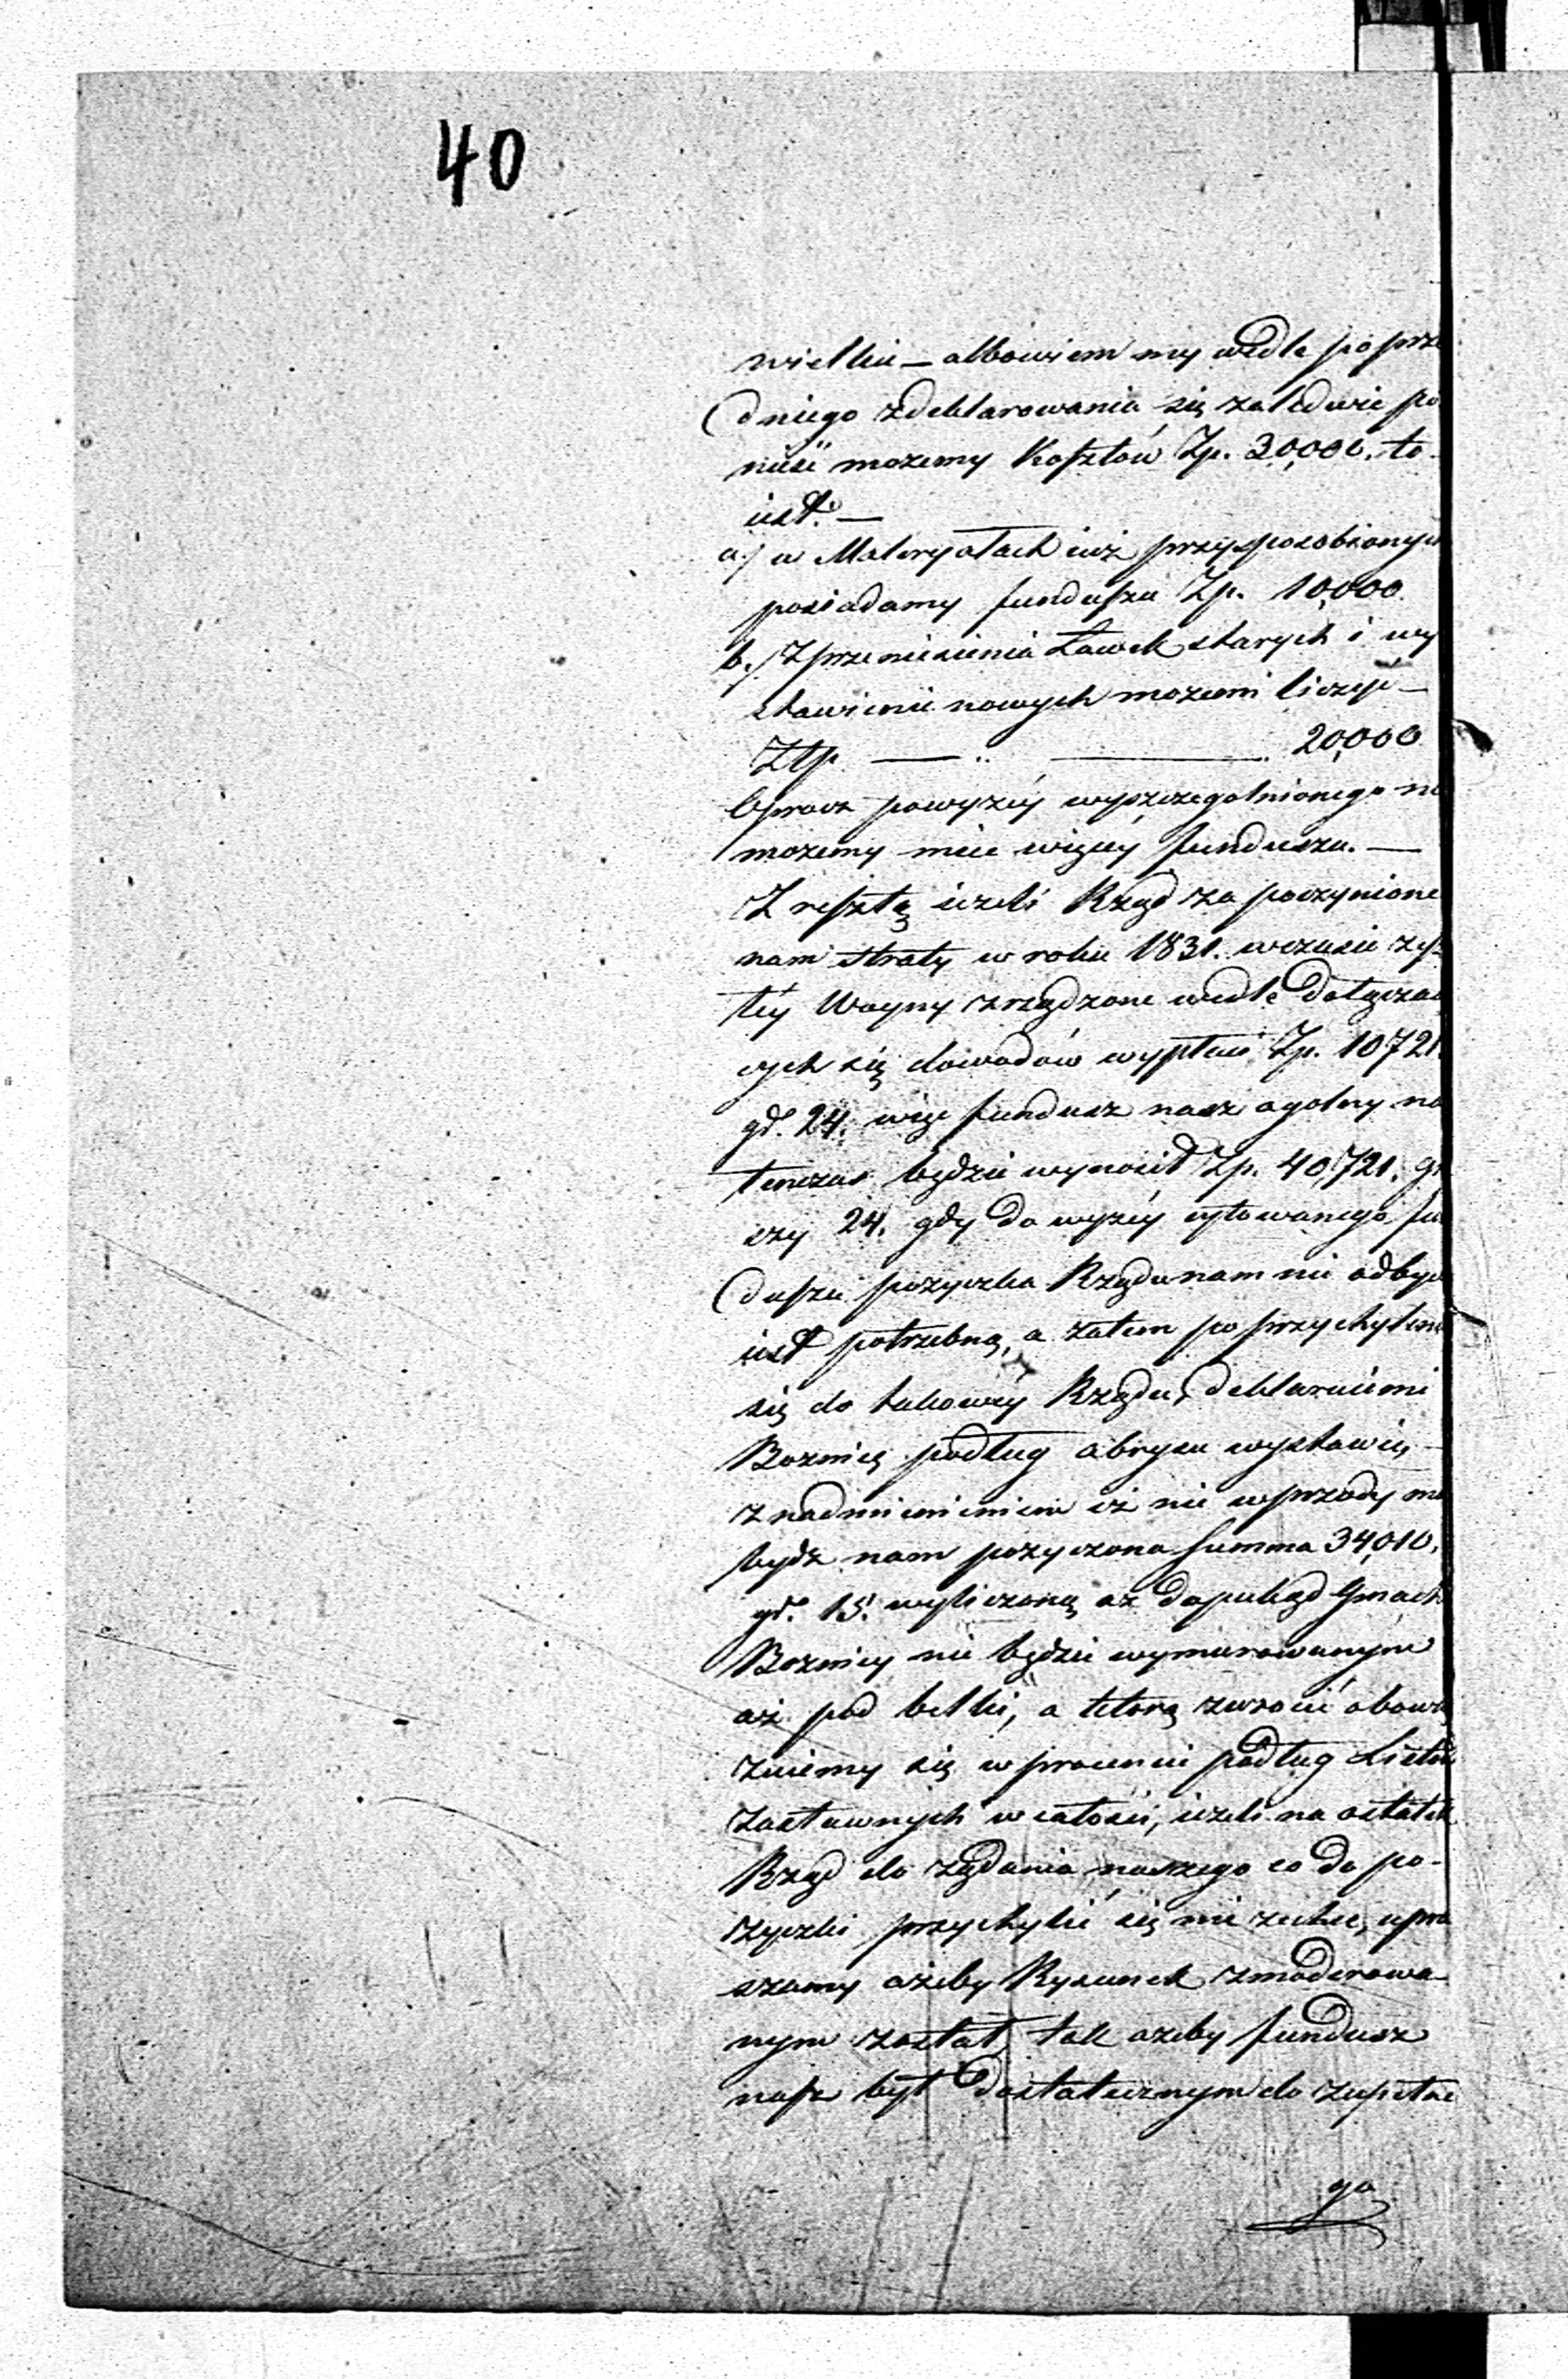 40
wielkie – albowiem my wedle poprze
dniego zdeklarowania się zaledwie po
nieść możemy Kosztów Zp. 30,000. to
iest. –
a./ w Materyałach iuż przysposobionych
posiadamy funduszu Zp. 10,000
b./ Z przeniesienia Ławek starych i wy
stawienie nowych możemi liczyć –
Ztp. — „ — 20,000
Oprocz powyżéy wyszczegolnionego nie
możemy mieć więcéy funduszu. –
Z resztą ieżeli Rząd za poczynione
nam straty w roku 1831. w czasie zesz
łéy Woyny zrządzone wedle dołącza
cych się dowodów wypłaci Zp. 10721.
gr. 24. więc fundusz nasz ogolny na
tenczas będzie wynosił Zp. 40,721. gr
szy 24. gdy do wyzéy cytowanego fun
duszu pożyczka Rządu nam nie odbyc
iest potrzebną, a zatem po przychyleni
się do takowéy Rządu, deklaruiemi
Boznicę podług abrysu wystawić, –
z nadmienieniem iż nie wprzody ma
bydz nam pożyczona Summa 34,010.
gr. 15. wyliczoną aż dopukąd Gmach
Boznicy nie będzie wymurowanym
aż pod belki, a ktorą zwrocić obowią
zuiemy się w procencie podług Listów
Zastawnych w całości, ieżeli na ostatek
Rząd do żądania naszego co do po-
życzki przychylić się nie zechce, upra
szamy ażeby Rysunek zmoderowa-
nym został, tak ażeby fundusz
nasz był dostatecznym do zupełne
go